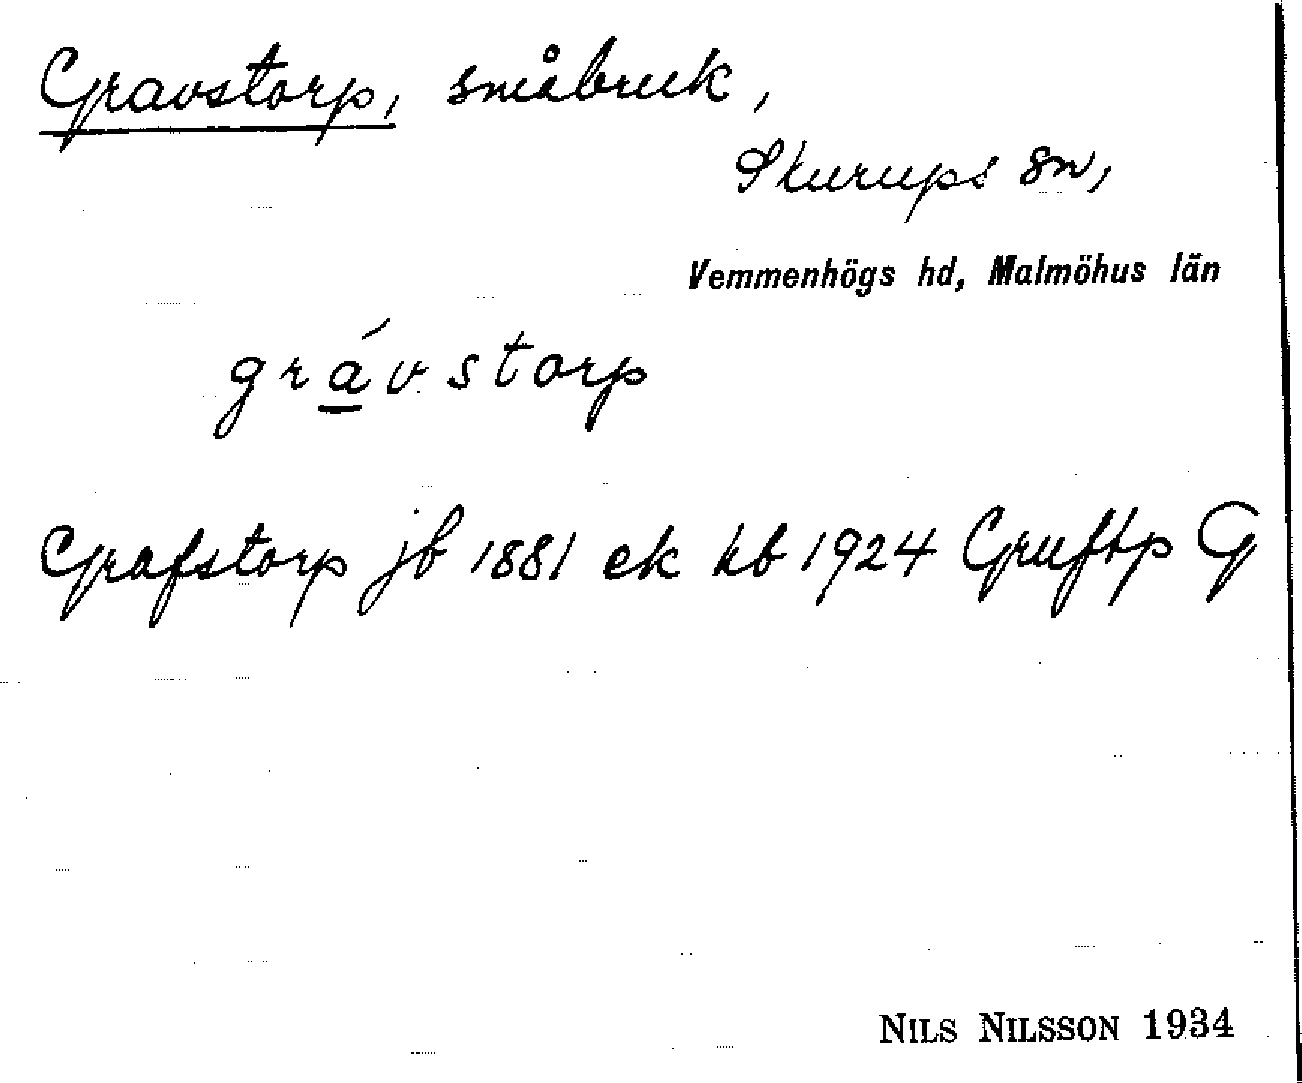 Gravstorp, småbruk,
Skurups sn,
Vemmenhögs hd, Malmöhus län
grávstorp
Grafstorp jb 1881 ek kb 1924 Gruftp G
NILS NILSSON 1934